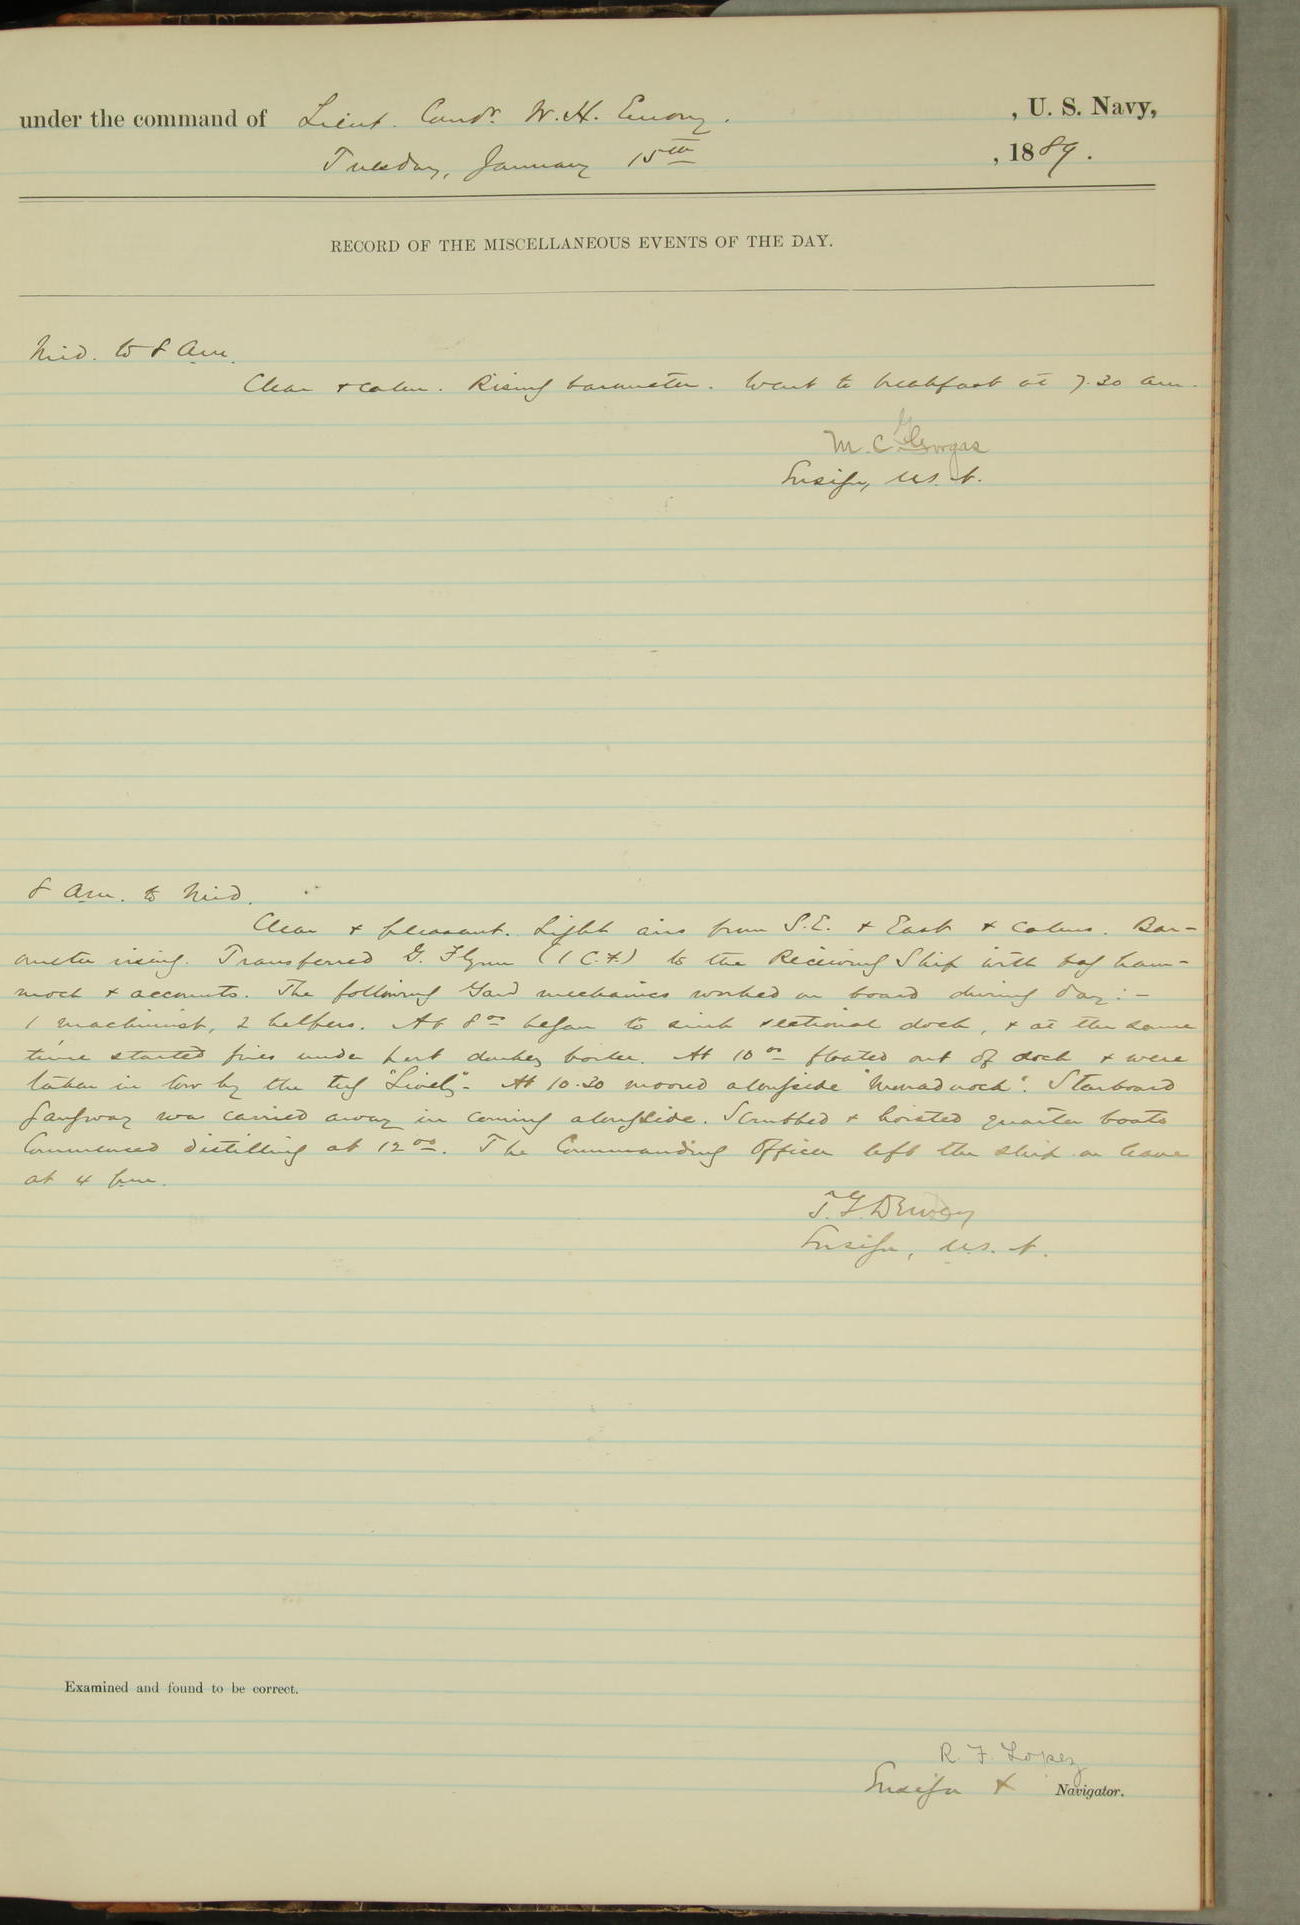 under the command of Lieut. Comdr. W. H. Emory. , U. S. Navy,
Tuesday, January 15th , 1889.
RECORD OF THE MISCELLANEOUS EVENTS OF THE DAY.
Mid. to 8 Am.
Clear & calm. Rising barometer. Went to breakfast at 7.30 am.
M. C. Gorgas
Ensign, U.S.N.
8 Am. to Mid.
Clear & pleasant. Light airs from S.E. & East & calms. Bar-
ometer rising. Transferred G. Flynn (1 C.F.) to the Receiving Ship with bag ham-
mock & accounts. The following Yard mechanics worked on board during day:-
1 machinist, 2 helpers. At 8 00 began to sink sectional dock, & at the same
time started fires under port donkey boiler. At 10 00 floated out of dock & were
taken in tow by the tug "Lively". At 10.30 moored alongside "Monadnock". Starboard
gangway was carried away in coming alongside. Scrubbed & hoisted quarter boats
Commenced distilling at 12 00. The Commanding Officer left the ship on leave
at 4 pm.
T. G. Dewey
Ensign, U.S.N.
Examined and found to be correct.
R. F. Lopez
Ensign & Navigator.